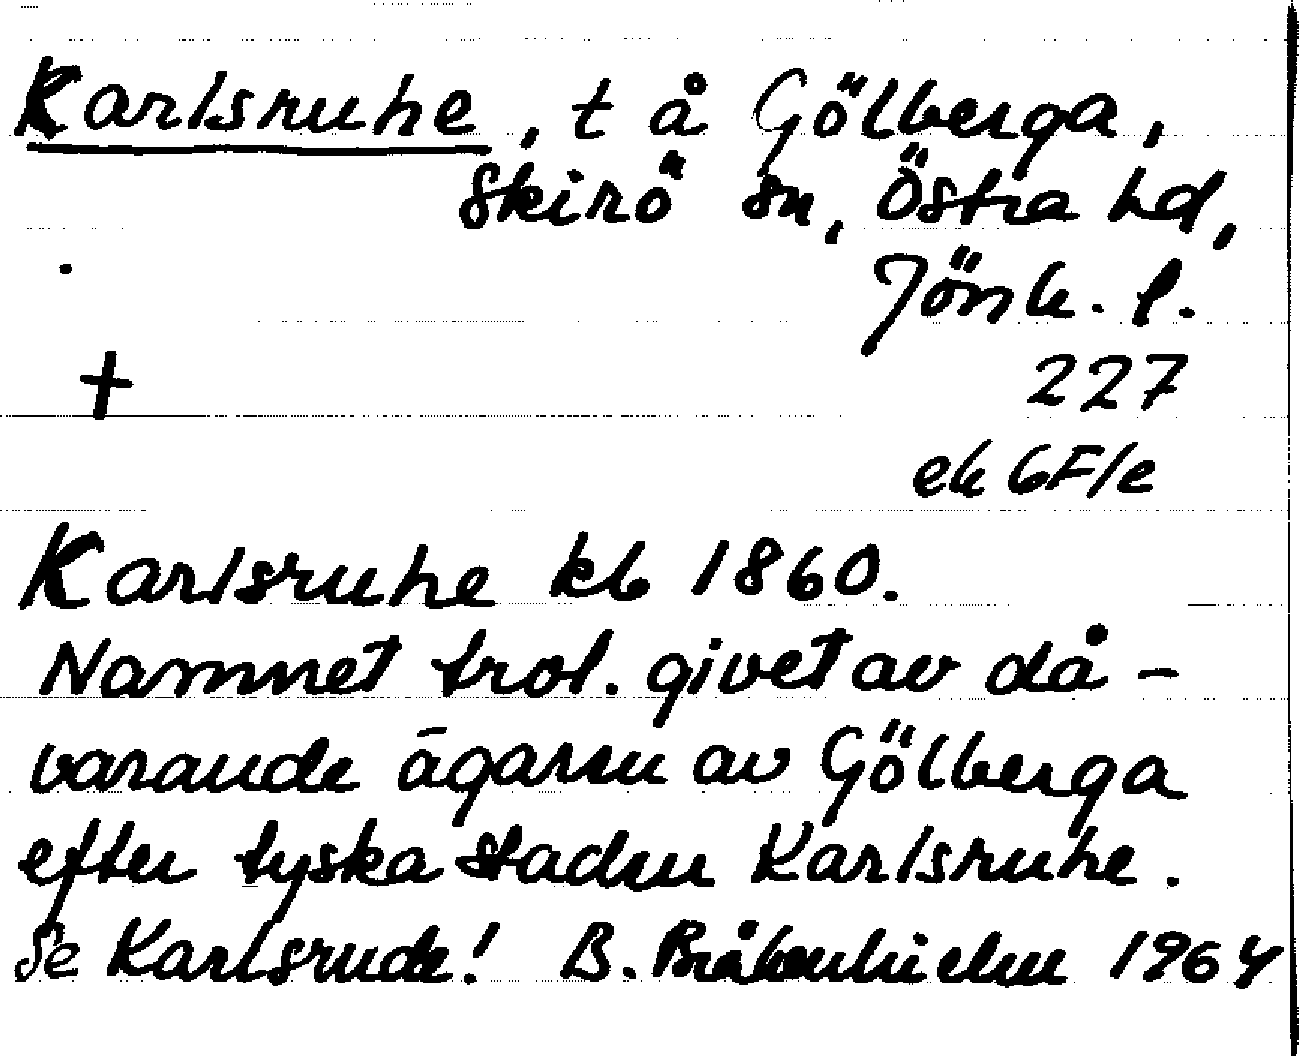 Karlsruhe, t å Gölberga,
Skirö sn, Östra hd,
Jönk. l.
†
227
ek 6F/e
Karlsruhe kb 1860.
Namnet trol. givet av då-
varande ägaren av Gölberga
efter tyska staden Karlsruhe.
Se Karlsrude! B. Bråkenhielm 1964